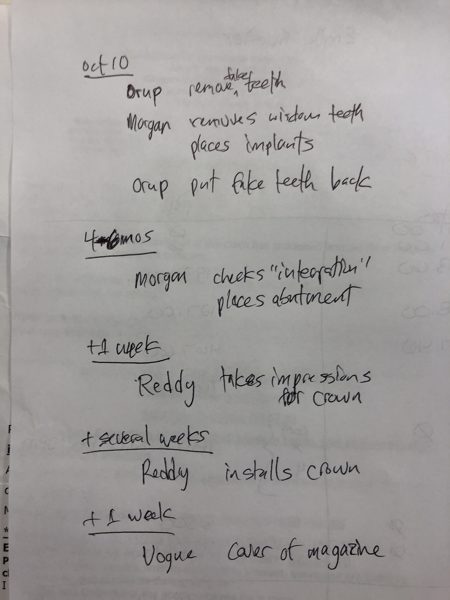 oct 10
Orup remove fake teeth
Morgan removes wisdom teeth
places implants
Orup put fake teeth back
4-6mos
Morgan checks "integration"
places abutment
+1 week
Reddy takes impressions
for crown
+ several weeks
Reddy installs crown
+ 1 week
Vogue cover of magazine